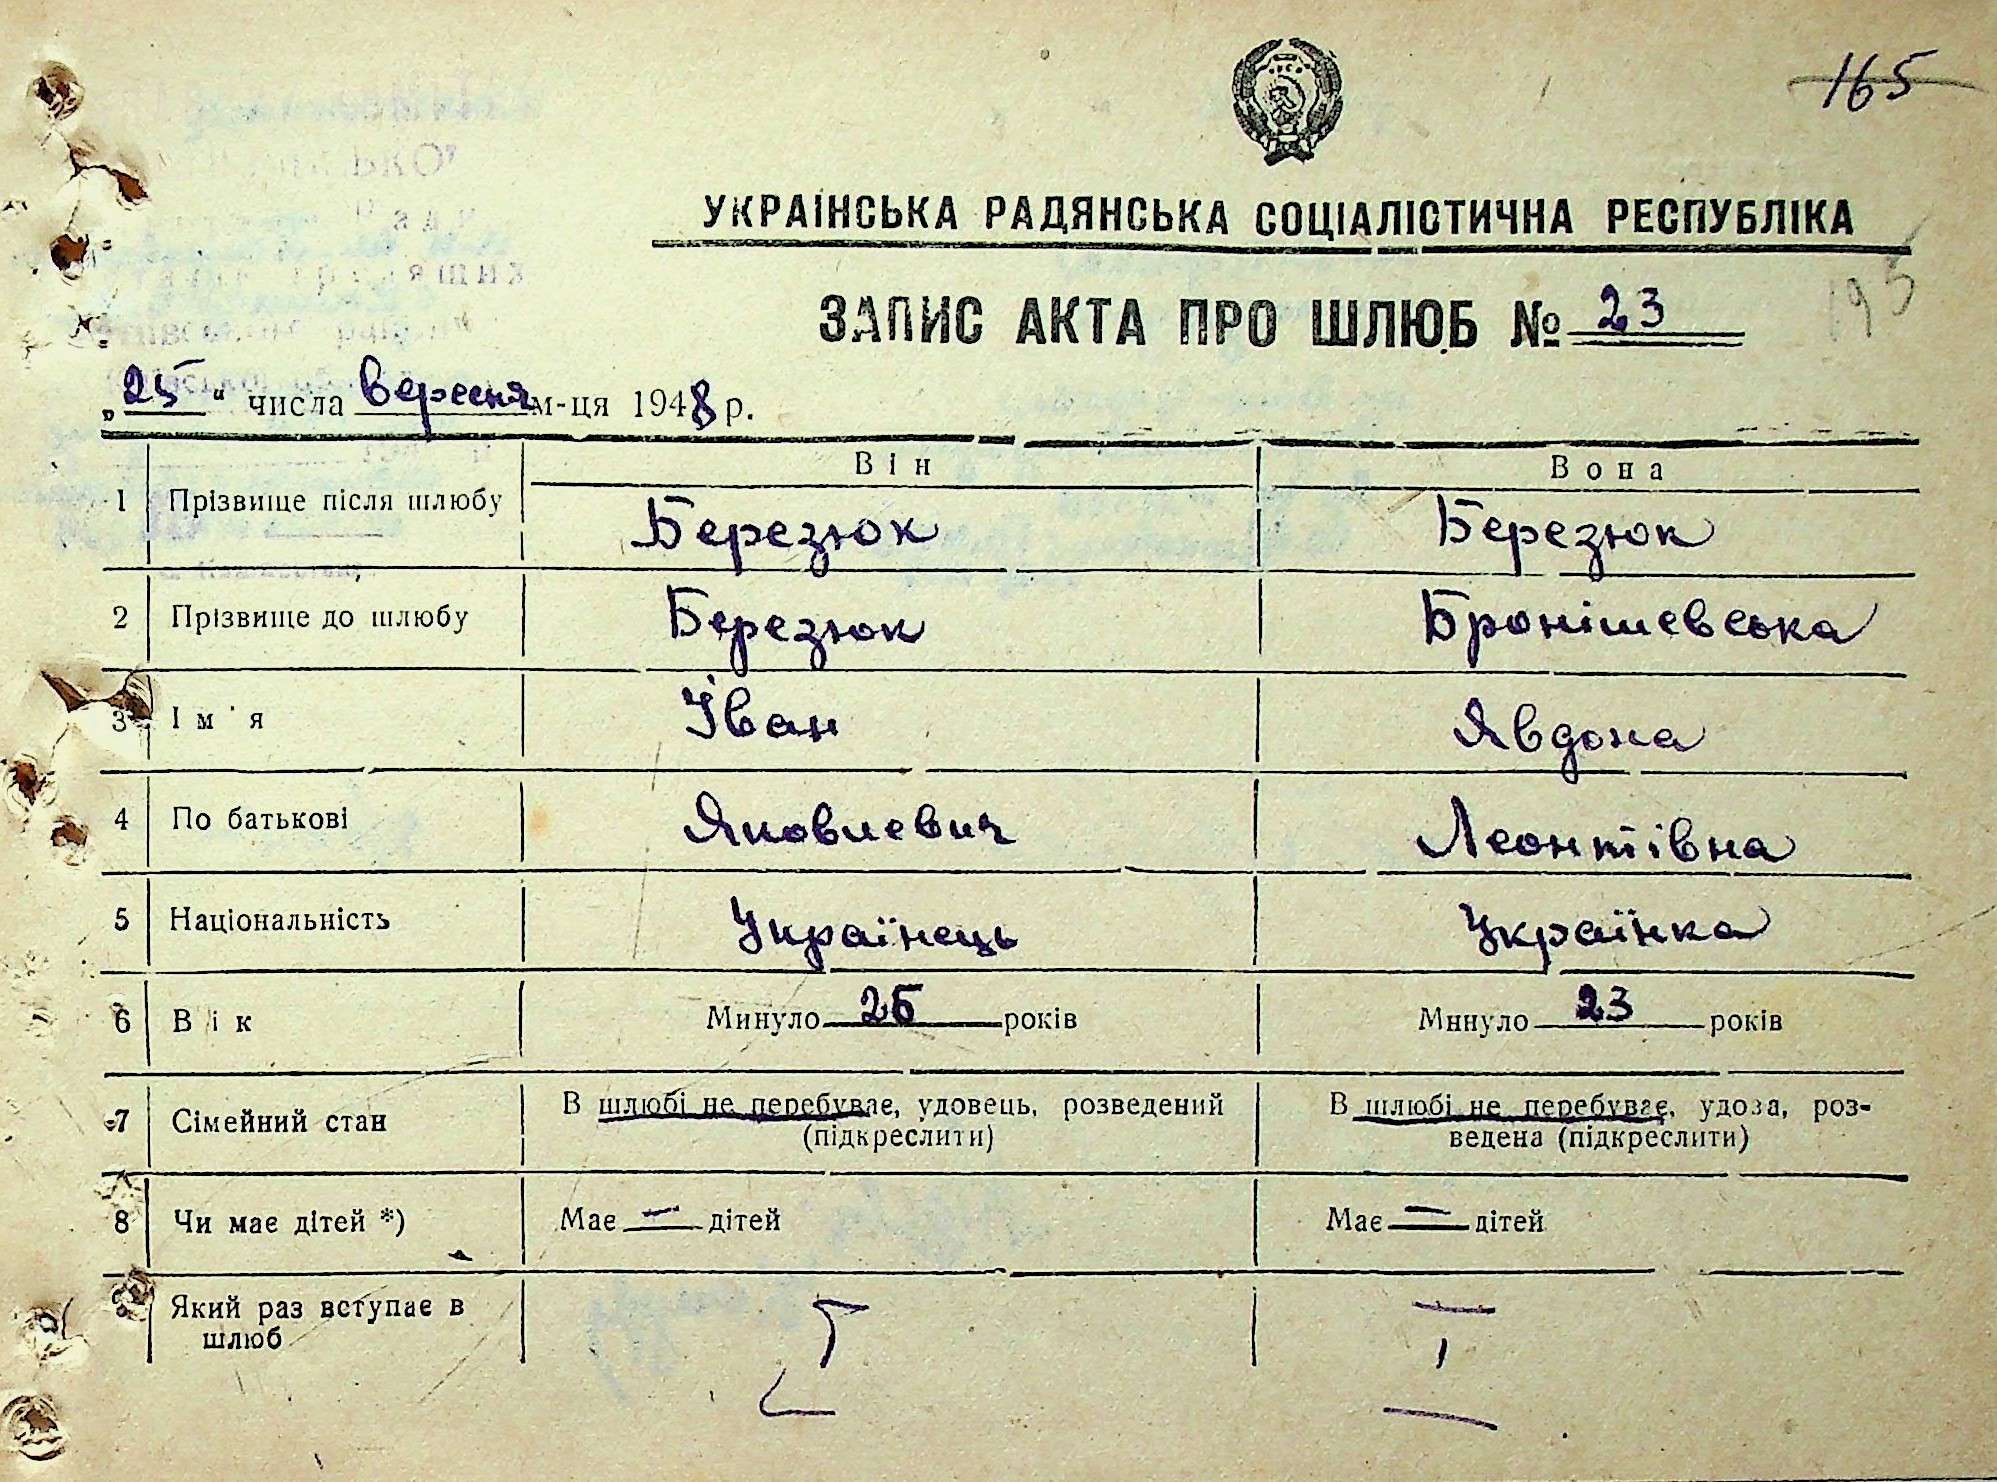 165
УКРАЇНСЬКА РАДЯНСЬКА СОЦІАЛІСТИЧНА РЕСПУБЛІКА
ЗАПИС АКТА ПРО ШЛЮБ № 23
195
„25“ числа вересня м-ця 1948 р.
Він Вона
1 Прізвище після шлюбу Березюк Березюк
2 Прізвище до шлюбу Березюк Бронішевська
3 Ім'я Іван Явдоха
4 По батькові Яковлевич Леонтівна
5 Національність Українець Українка
6 Вік Минуло 26 років Минуло 23 років
7 Сімейний стан В шлюбі не перебуває, удовець, розведений В шлюбі не перебуває, удова, роз-
(підкреслити) ведена (підкреслити)
8 Чи має дітей *) Має — дітей Має — дітей
Який раз вступає в I I
шлюб